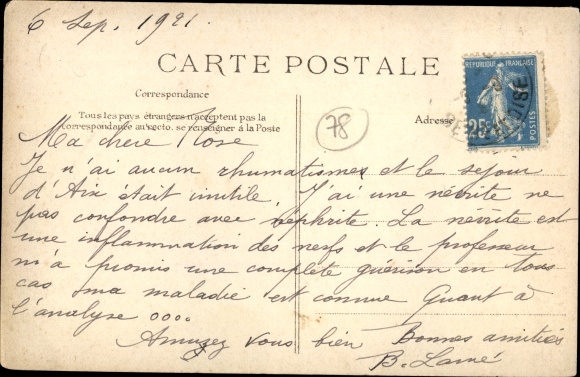 6 Sep. 1921.
CARTE POSTALE
RÉPUBLIQUE FRANÇAISE
25c
POSTES
Correspondance
Tous les pays étrangers n'acceptent pas la
correspondance au recto. se renseigner à la Poste
78
Adresse
Ma chere Rose
Je n'ai aucun rhumatismes et le sejour
d'Aix était inutile. J'ai une névrite ne
pas confondre avec nephrite. La nevrite est
une inflammation des nerfs et le professeur
m'a promis une complète guérison en tous
cas ma maladie est connue Quant à
l'analyse oooo
Amusez vous bien Bonnes amitiés
B. Lamé